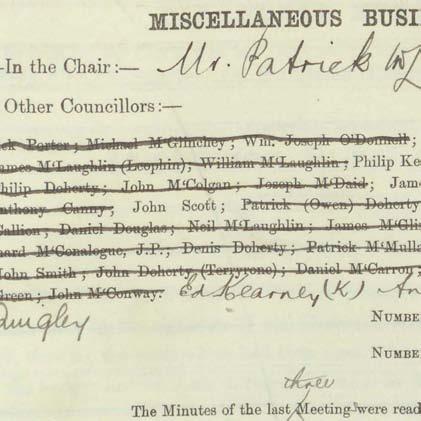 MISCELLANEOUS BUSI
-In the Chair:— Mr. Patrick
Other Councillors:—
ck Porter; Michael M'Glinchey; Wm. Joseph O'Donnell;
ames M'Laughlin (Leophin); William M'Laughlin; Philip Ke
hilip Doherty; John M'Colgan; Joseph M'Daid; Jam
nthony Canny; John Scott; Patrick (Owen) Doherty
allion; Daniel Douglas; Neil M'Laughlin; James M'Glis
hard M'Conalogue, J.P.; Denis Doherty; Patrick M'Mulla
John Smith; John Doherty (Terryrone); Daniel M'Carron;
Green; John M'Conway. Ed Kearney (K) An
Quigley NUMBE
NUMBE
three
The Minutes of the last Meeting were read